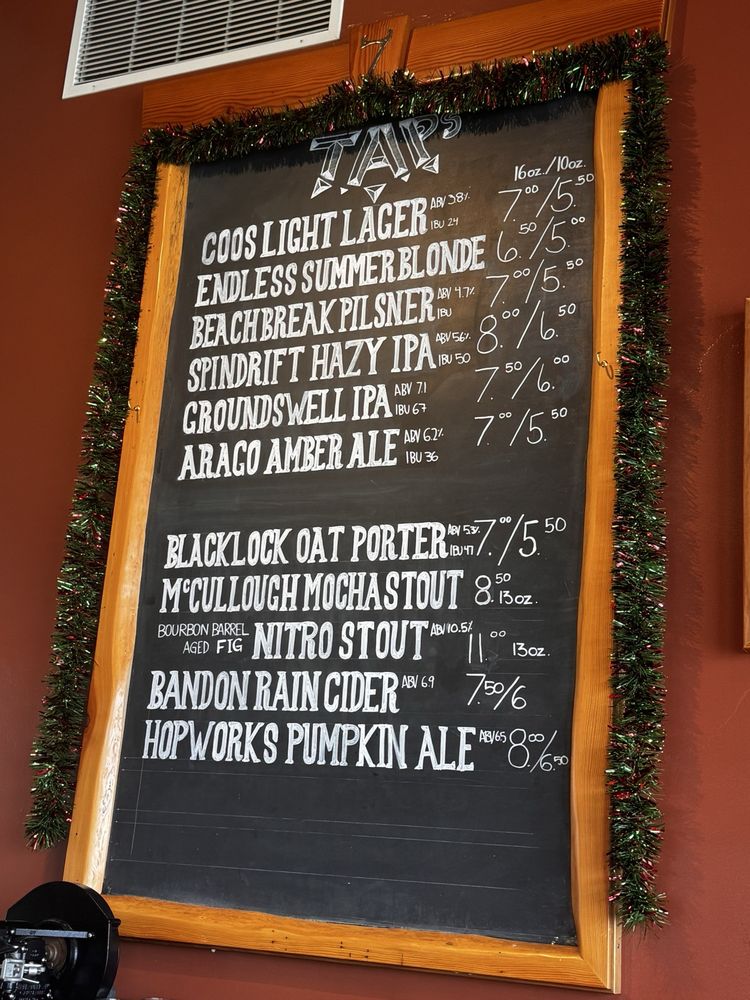 TAPS
16oz./10oz.
COOS LIGHT LAGER ABV 3.8% IBU 24 7.00/5.50
ENDLESS SUMMER BLONDE 6.50/5.00
BEACH BREAK PILSNER ABV 4.7% IBU 7.00/5.50
SPINDRIFT HAZY IPA ABV 5.6% IBU 50 8.00/6.50
GROUNDSWELL IPA ABV 7.1 IBU 67 7.50/6.00
ARAGO AMBER ALE ABV 6.2% IBU 36 7.00/5.50
BLACKLOCK OAT PORTER ABV 5.3% IBU 47 7.00/5.50
McCULLOUGH MOCHA STOUT 8.50 13oz.
BOURBON BARREL AGED FIG NITRO STOUT ABV 10.5% 11.00 13oz.
BANDON RAIN CIDER ABV 6.9 7.50/6
HOPWORKS PUMPKIN ALE ABV 6.5 8.00/6.50